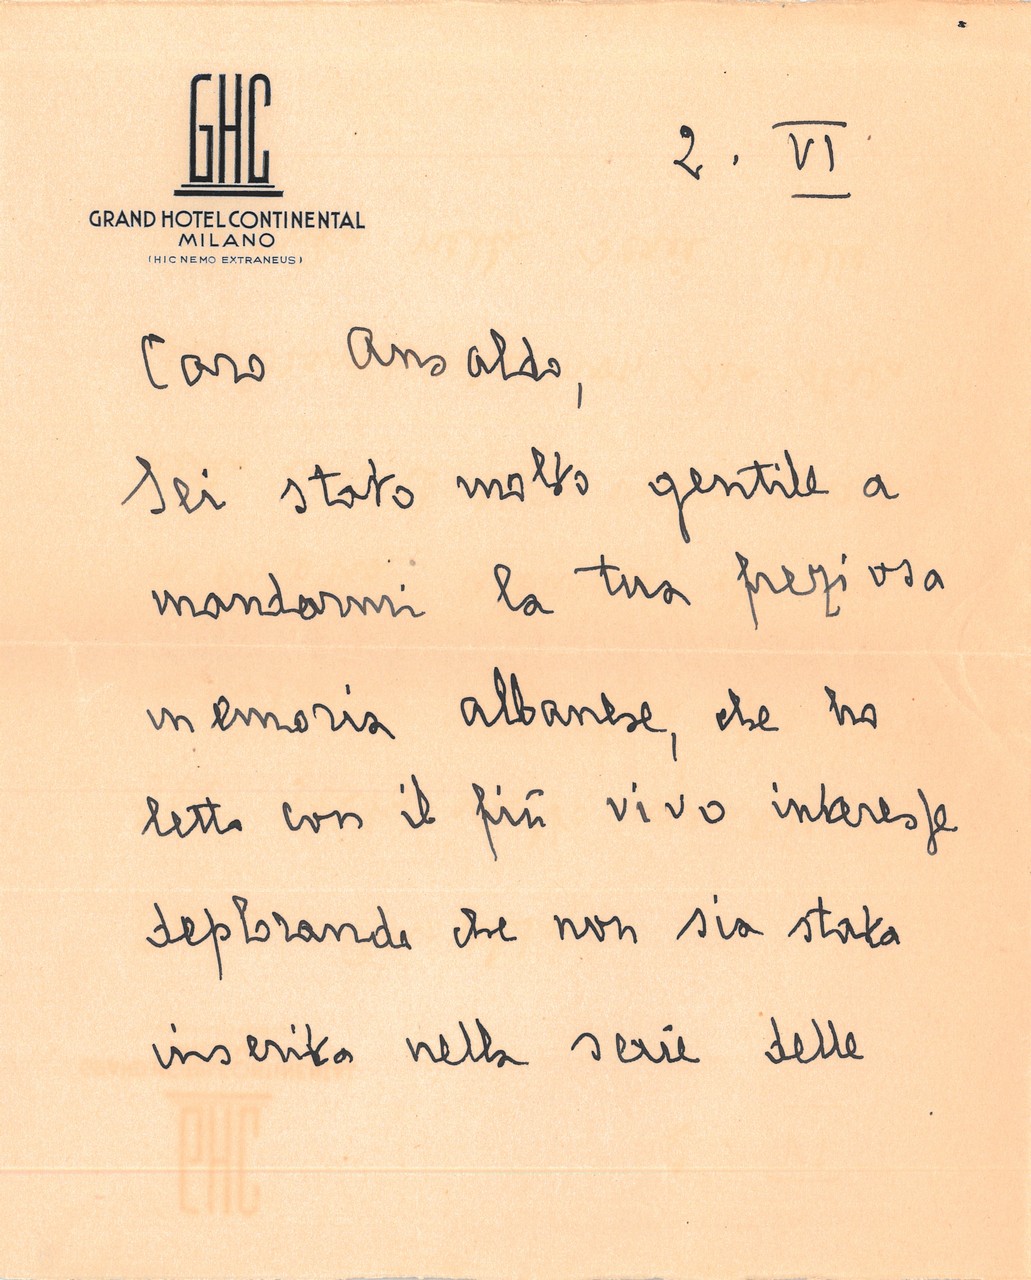 GHC
GRAND HOTEL CONTINENTAL
MILANO
(HIC NEMO EXTRANEUS)
2. VI
Caro Ansaldo,
Sei stato molto gentile a
mandarmi la tua preziosa
memoria albanese, che ho
letto con il più vivo interesse
deplorando che non sia stata
inserita nella serie delle